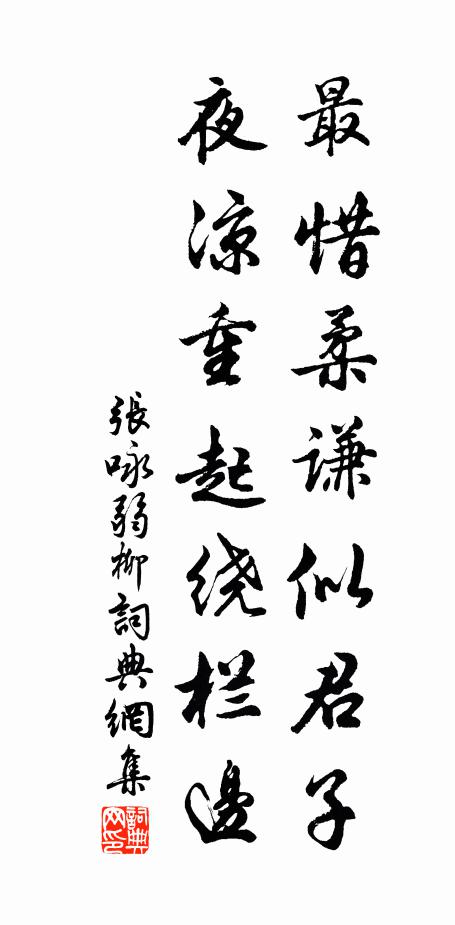 最惜柔谦似君子
夜凉重起绕栏邊
張咏弱柳詞典網集
詞典网印